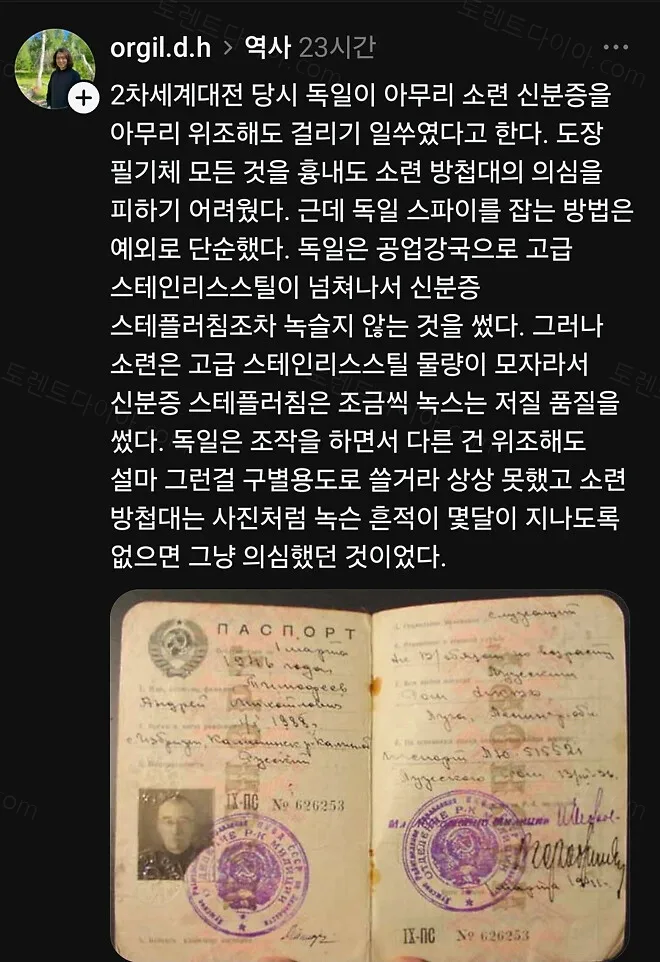 orgil.d.h > 역사 23시간
2차세계대전 당시 독일이 아무리 소련 신분증을
아무리 위조해도 걸리기 일쑤였다고 한다. 도장
필기체 모든 것을 흉내도 소련 방첩대의 의심을
피하기 어려웠다. 근데 독일 스파이를 잡는 방법은
예외로 단순했다. 독일은 공업강국으로 고급
스테인리스스틸이 넘쳐나서 신분증
스테플러침조차 녹슬지 않는 것을 썼다. 그러나
소련은 고급 스테인리스스틸 물량이 모자라서
신분증 스테플러침은 조금씩 녹스는 저질 품질을
썼다. 독일은 조작을 하면서 다른 건 위조해도
설마 그런걸 구별용도로 쓸거라 상상 못했고 소련
방첩대는 사진처럼 녹슨 흔적이 몇달이 지나도록
없으면 그냥 의심했던 것이었다.
ПАСПОРТ
1 марта
1946 года
Тимофеев
Андрей Михайлович
Русский
IХ-ПС № 626253
служащий
IХ-ПС № 626253